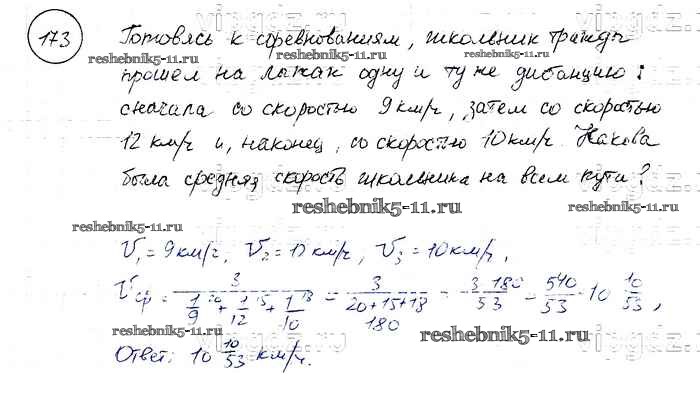 173 Готовясь к соревнованиям, школьник трижды
прошел на лыжах одну и ту же дистанцию:
сначала со скоростью 9 км/ч, затем со скоростью
12 км/ч и, наконец, со скоростью 10 км/ч. Какова
была средняя скорость школьника на всем пути?
V₁ = 9 км/ч, V₂ = 12 км/ч, V₃ = 10 км/ч,
Vср = 3/(1/9 ²⁰ + 1/12 ¹⁵ + 1/10 ¹⁸) = 3/((20+15+18)/180) = 3·180/53 = 540/53 = 10 10/53,
Ответ: 10 10/53 км/ч.
reshebnik5-11.ru
reshebnik5-11.ru
reshebnik5-11.ru
reshebnik5-11.ru
reshebnik5-11.ru
reshebnik5-11.ru
reshebnik5-11.ru
vipgdz.com